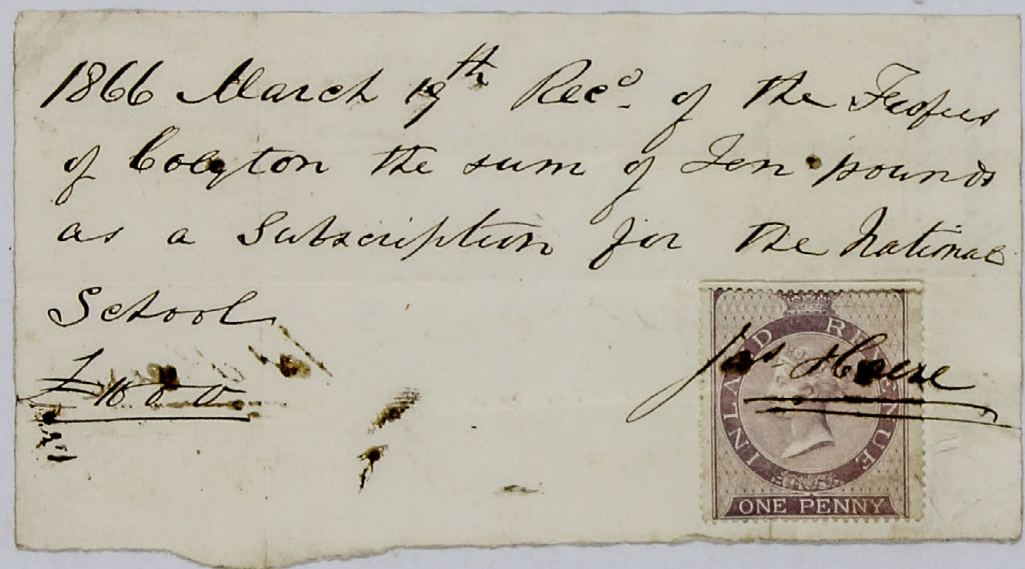 1866 March 19th Recd. of the Feofees
of Colyton the sum of Ten pounds
as a Subscription for the National
School
£10 0 0
Jas
INLAND REVENUE
ONE PENNY